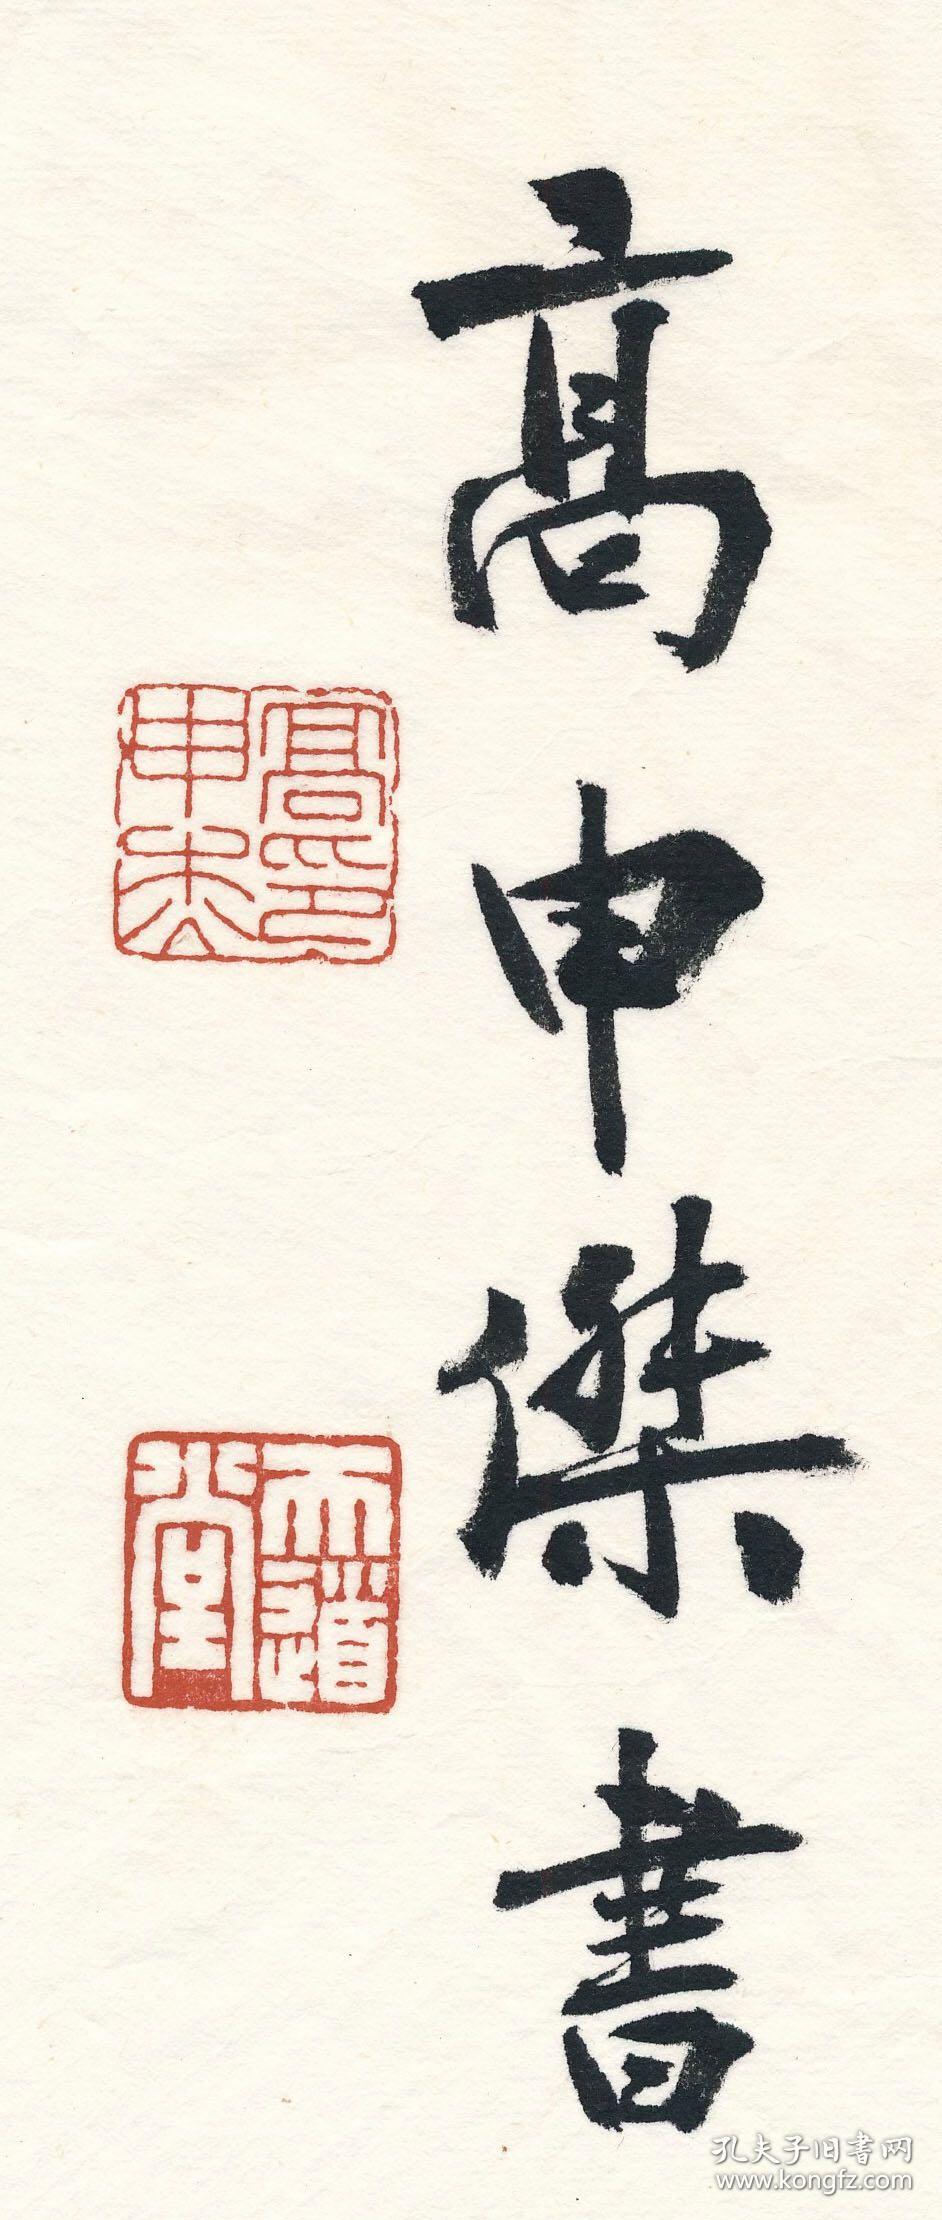 髙申傑書
髙印申杰
天道堂
孔夫子旧书网
www.kongfz.com